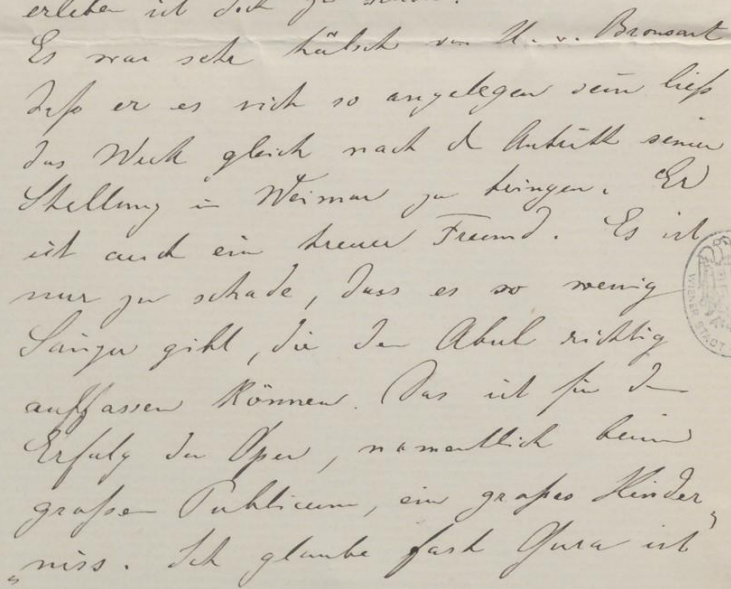 erleben ist doch zu
Es war sehr hübsch von H. v. Bronsart
daß er es sich so angelegen sein ließ
das Werk gleich nach d Antritt seiner
Stellung in Weimar zu bringen. Er
ist auch ein treuer Freund. Es ist
nur zu schade, dass es so wenig
Sänger gibt, die den Abul richtig
auffassen können. Das ist für den
Erfolg der Oper, namentlich beim
großen Publicum, ein großes Hinder„
„niss. Ich glaube fast Gura ist
WIENER STADT